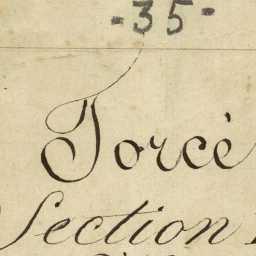 -35-
Torcé
Section